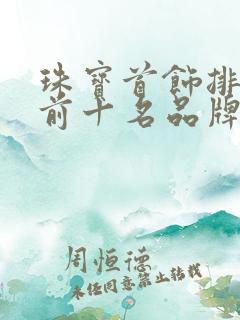 珠宝首饰排
前十名品牌
周恒德
未经同意禁止转载